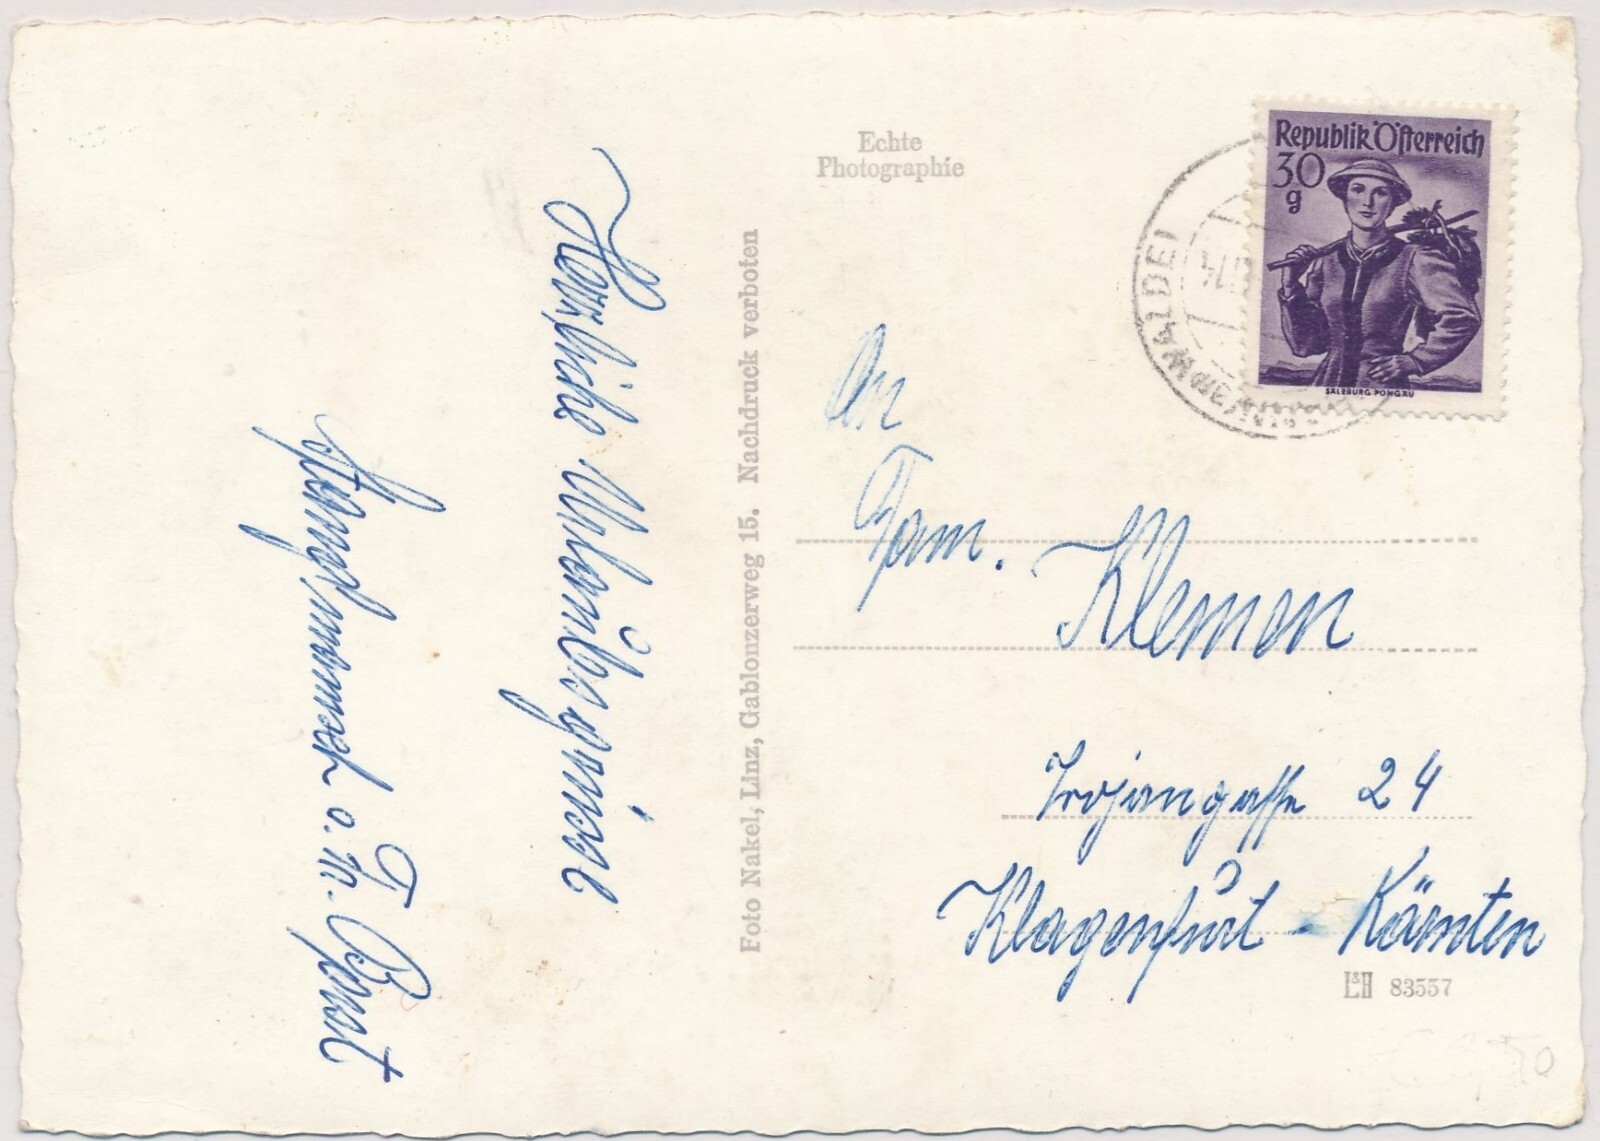 Herzliche Urlaubsgrüsse
u. m.
Foto Nakel, Linz, Gablonzerweg 15. Nachdruck verboten
Echte
Photographie
Republik Österreich
30
g
SALZBURG PONGAU
An
Fam. Klemen
Trojangasse 24
Klagenfurt - Kärnten
L&H 83557